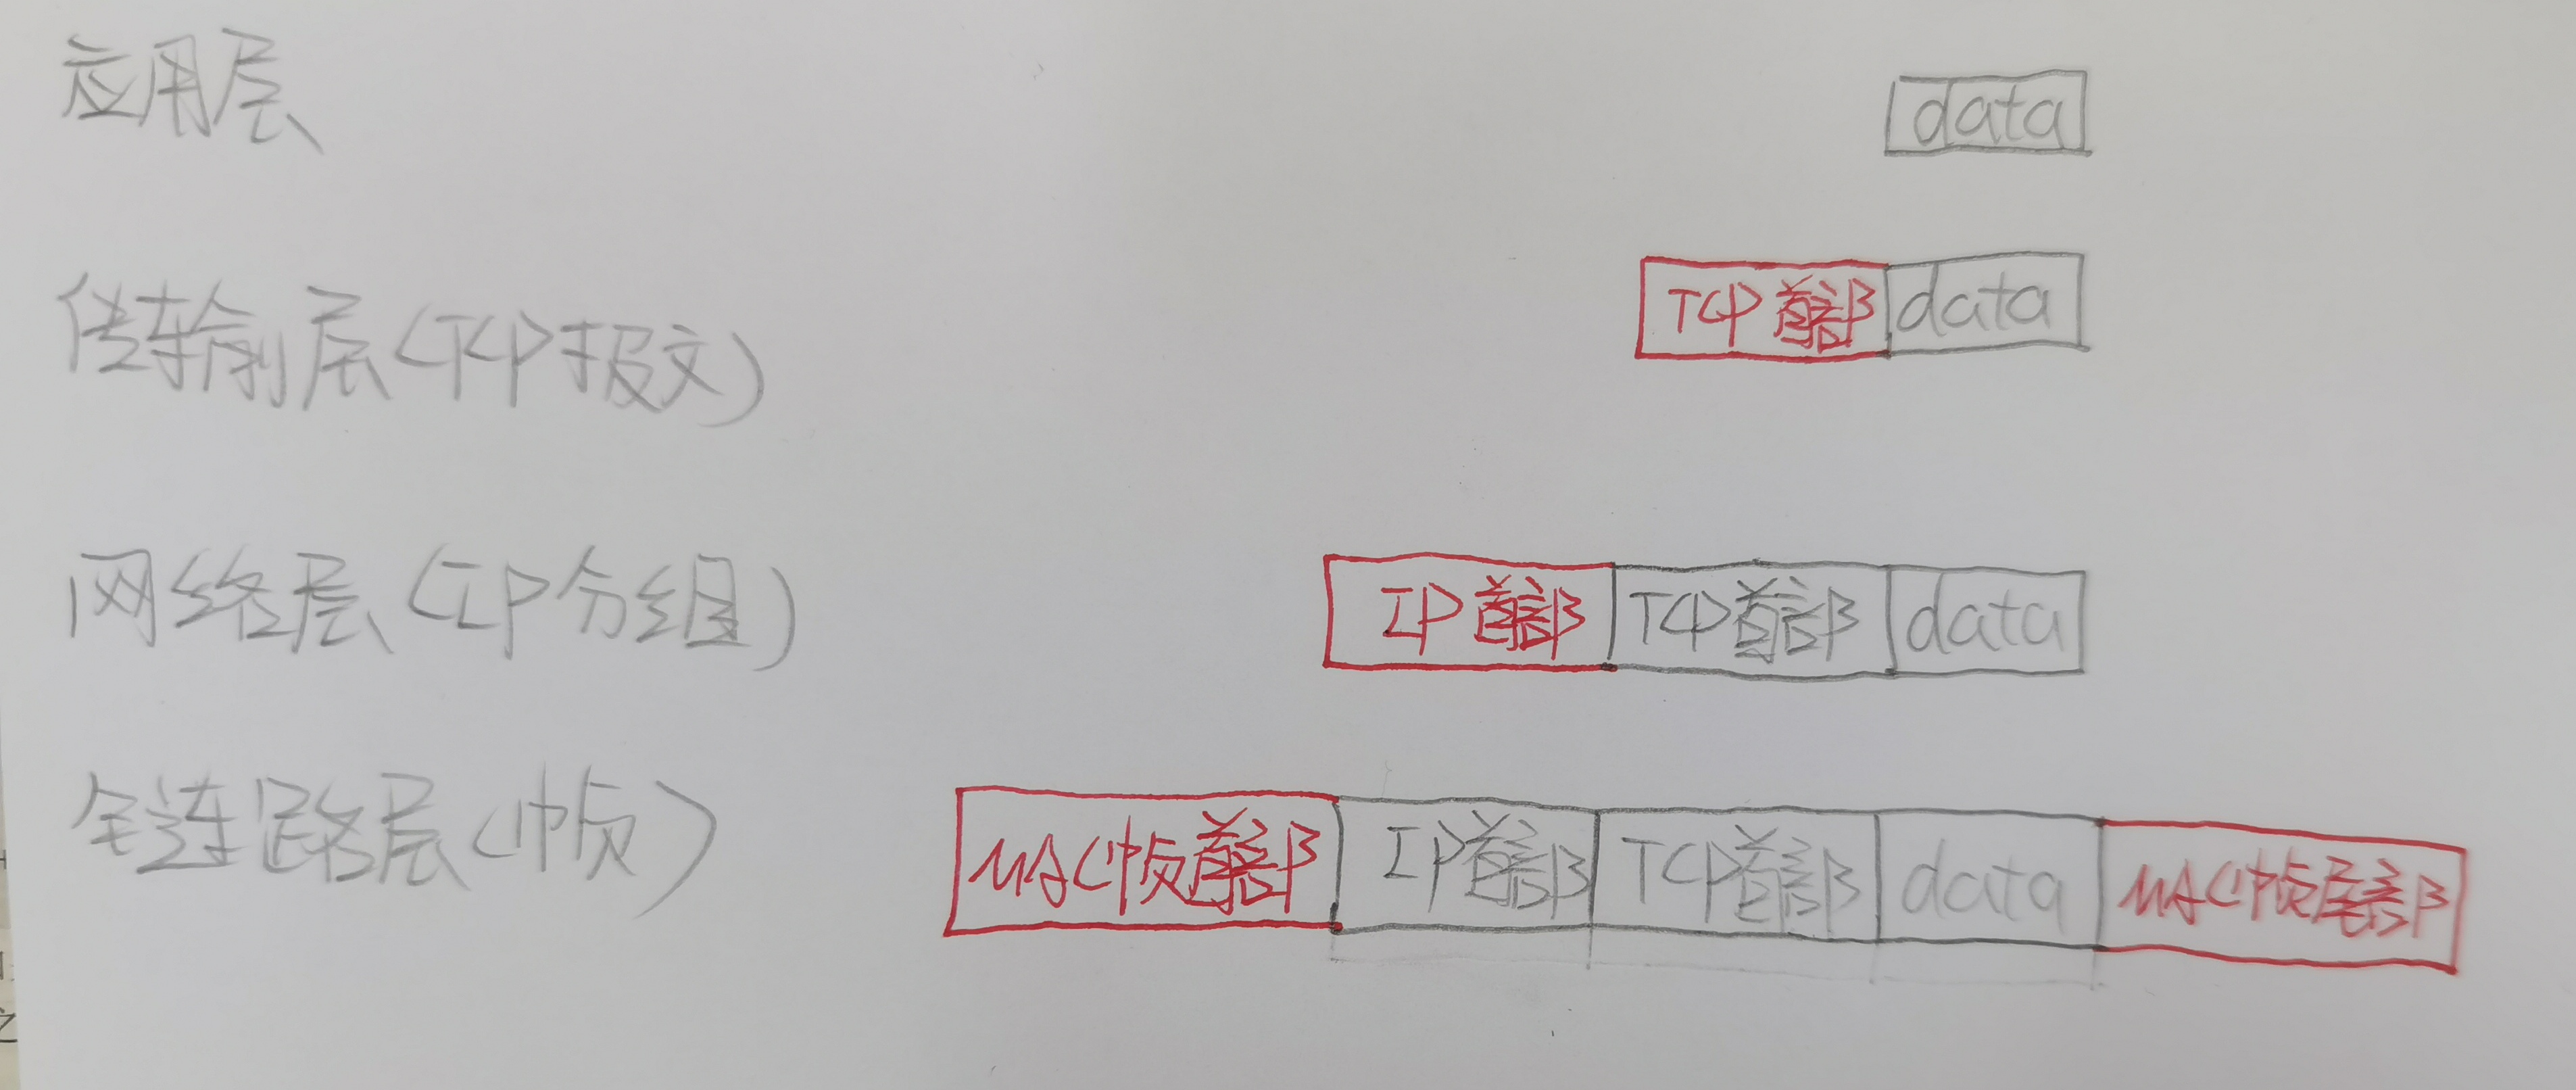 应用层 data
传输层(TCP报文) TCP首部 data
网络层(IP分组) IP首部 TCP首部 data
链路层(帧) MAC帧首部 IP首部 TCP首部 data MAC帧尾部